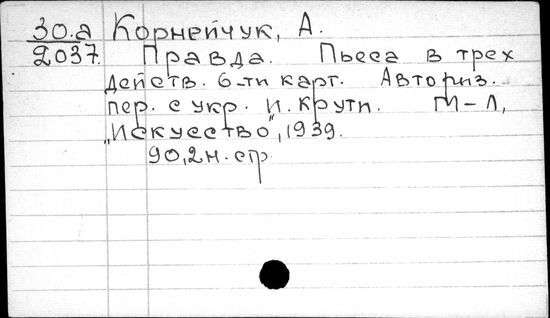 30.а Корнейчук, А.
2037. Правда. Пьеса в трех
действ. 6-ти карт. Авториз.
пер. с укр. И. Крути. М-Л,
„Искусство", 1939.
90,2н. стр